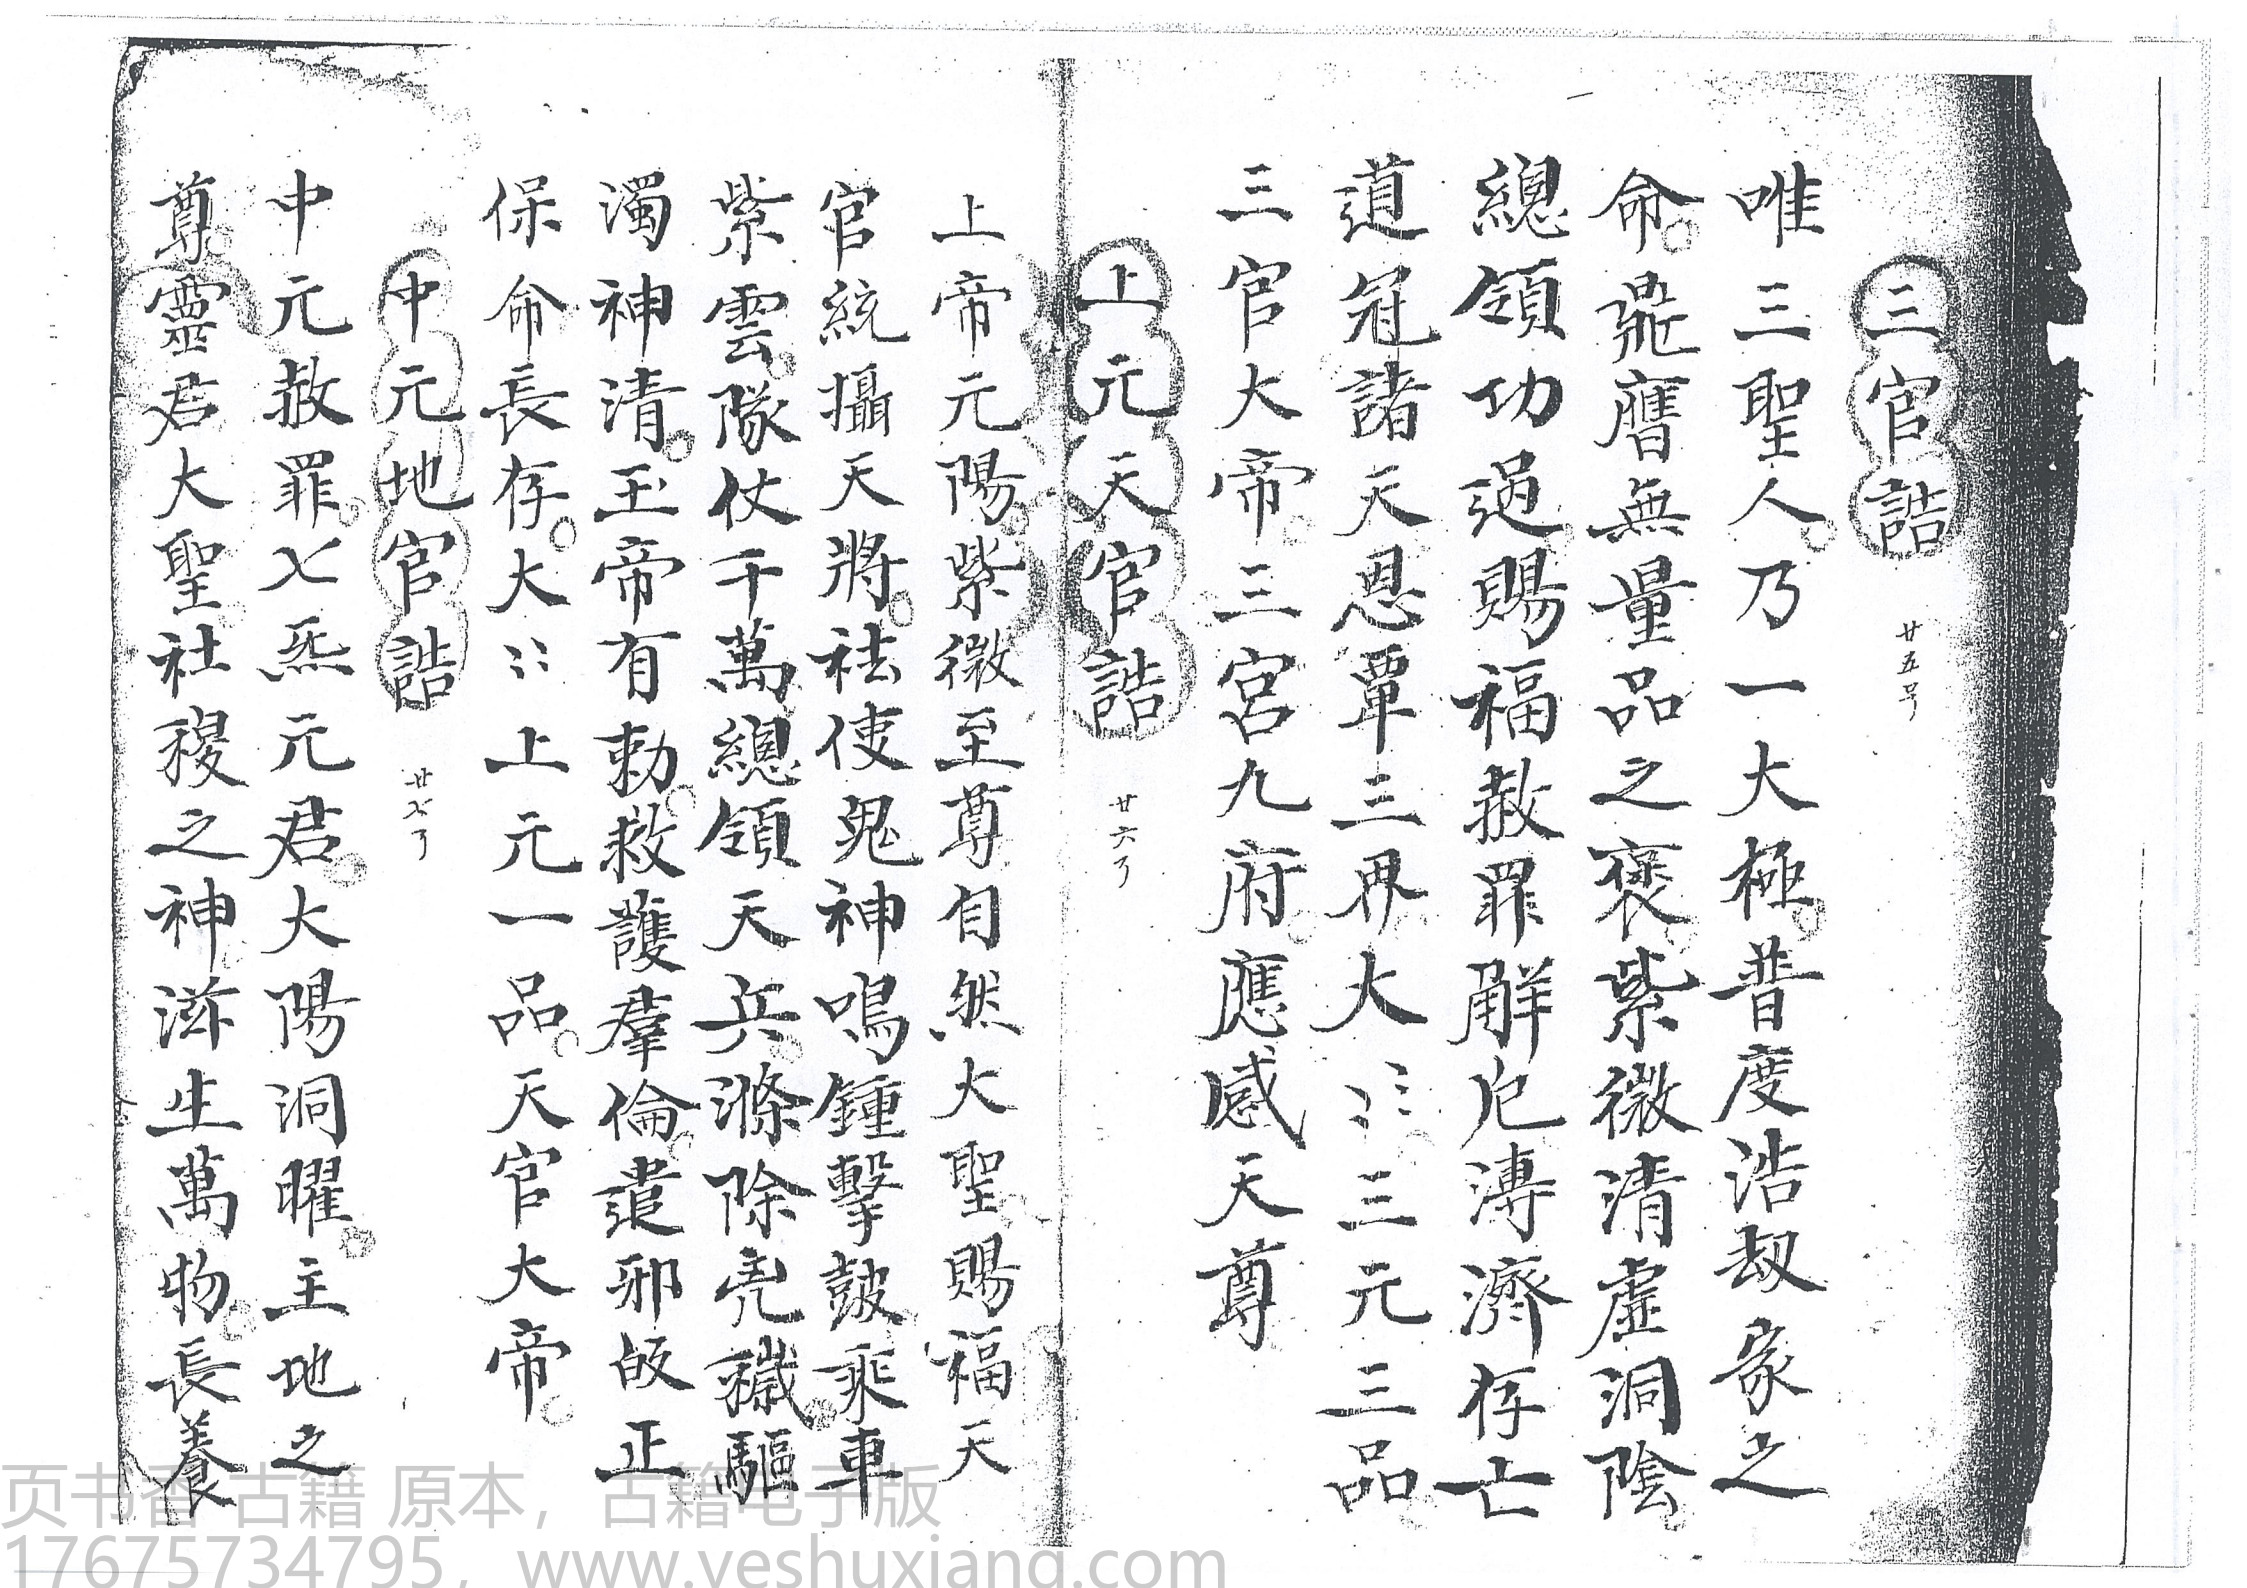 三官誥 廿五号
唯三聖人乃一大極普度浩刼家之
命鼎膺無量品之褒紫微清虛洞陰
總領功過賜福赦罪解厄溥濟存亡
道冠諸天恩覃三界大〻〻三元三品
三官大帝三宮九府應感天尊
上元天官誥 廿六
上帝元陽紫微至尊自然大聖賜福天
官統攝天將祛使鬼神鳴鍾擊鼓乘車
紫雲隊仗千萬總領天兵滌除兇穢驅
濁神清玉帝有勅救護羣倫遣邪皈正
保命長存大〻上元一品天官大帝
中元地官誥 廿七
中元赦罪七炁元君大陽洞曜主地之
尊靈君大聖社稷之神滋生萬物長養
页书香 古籍 原本，古籍电子版
17675734795，www.yeshuxiang.com